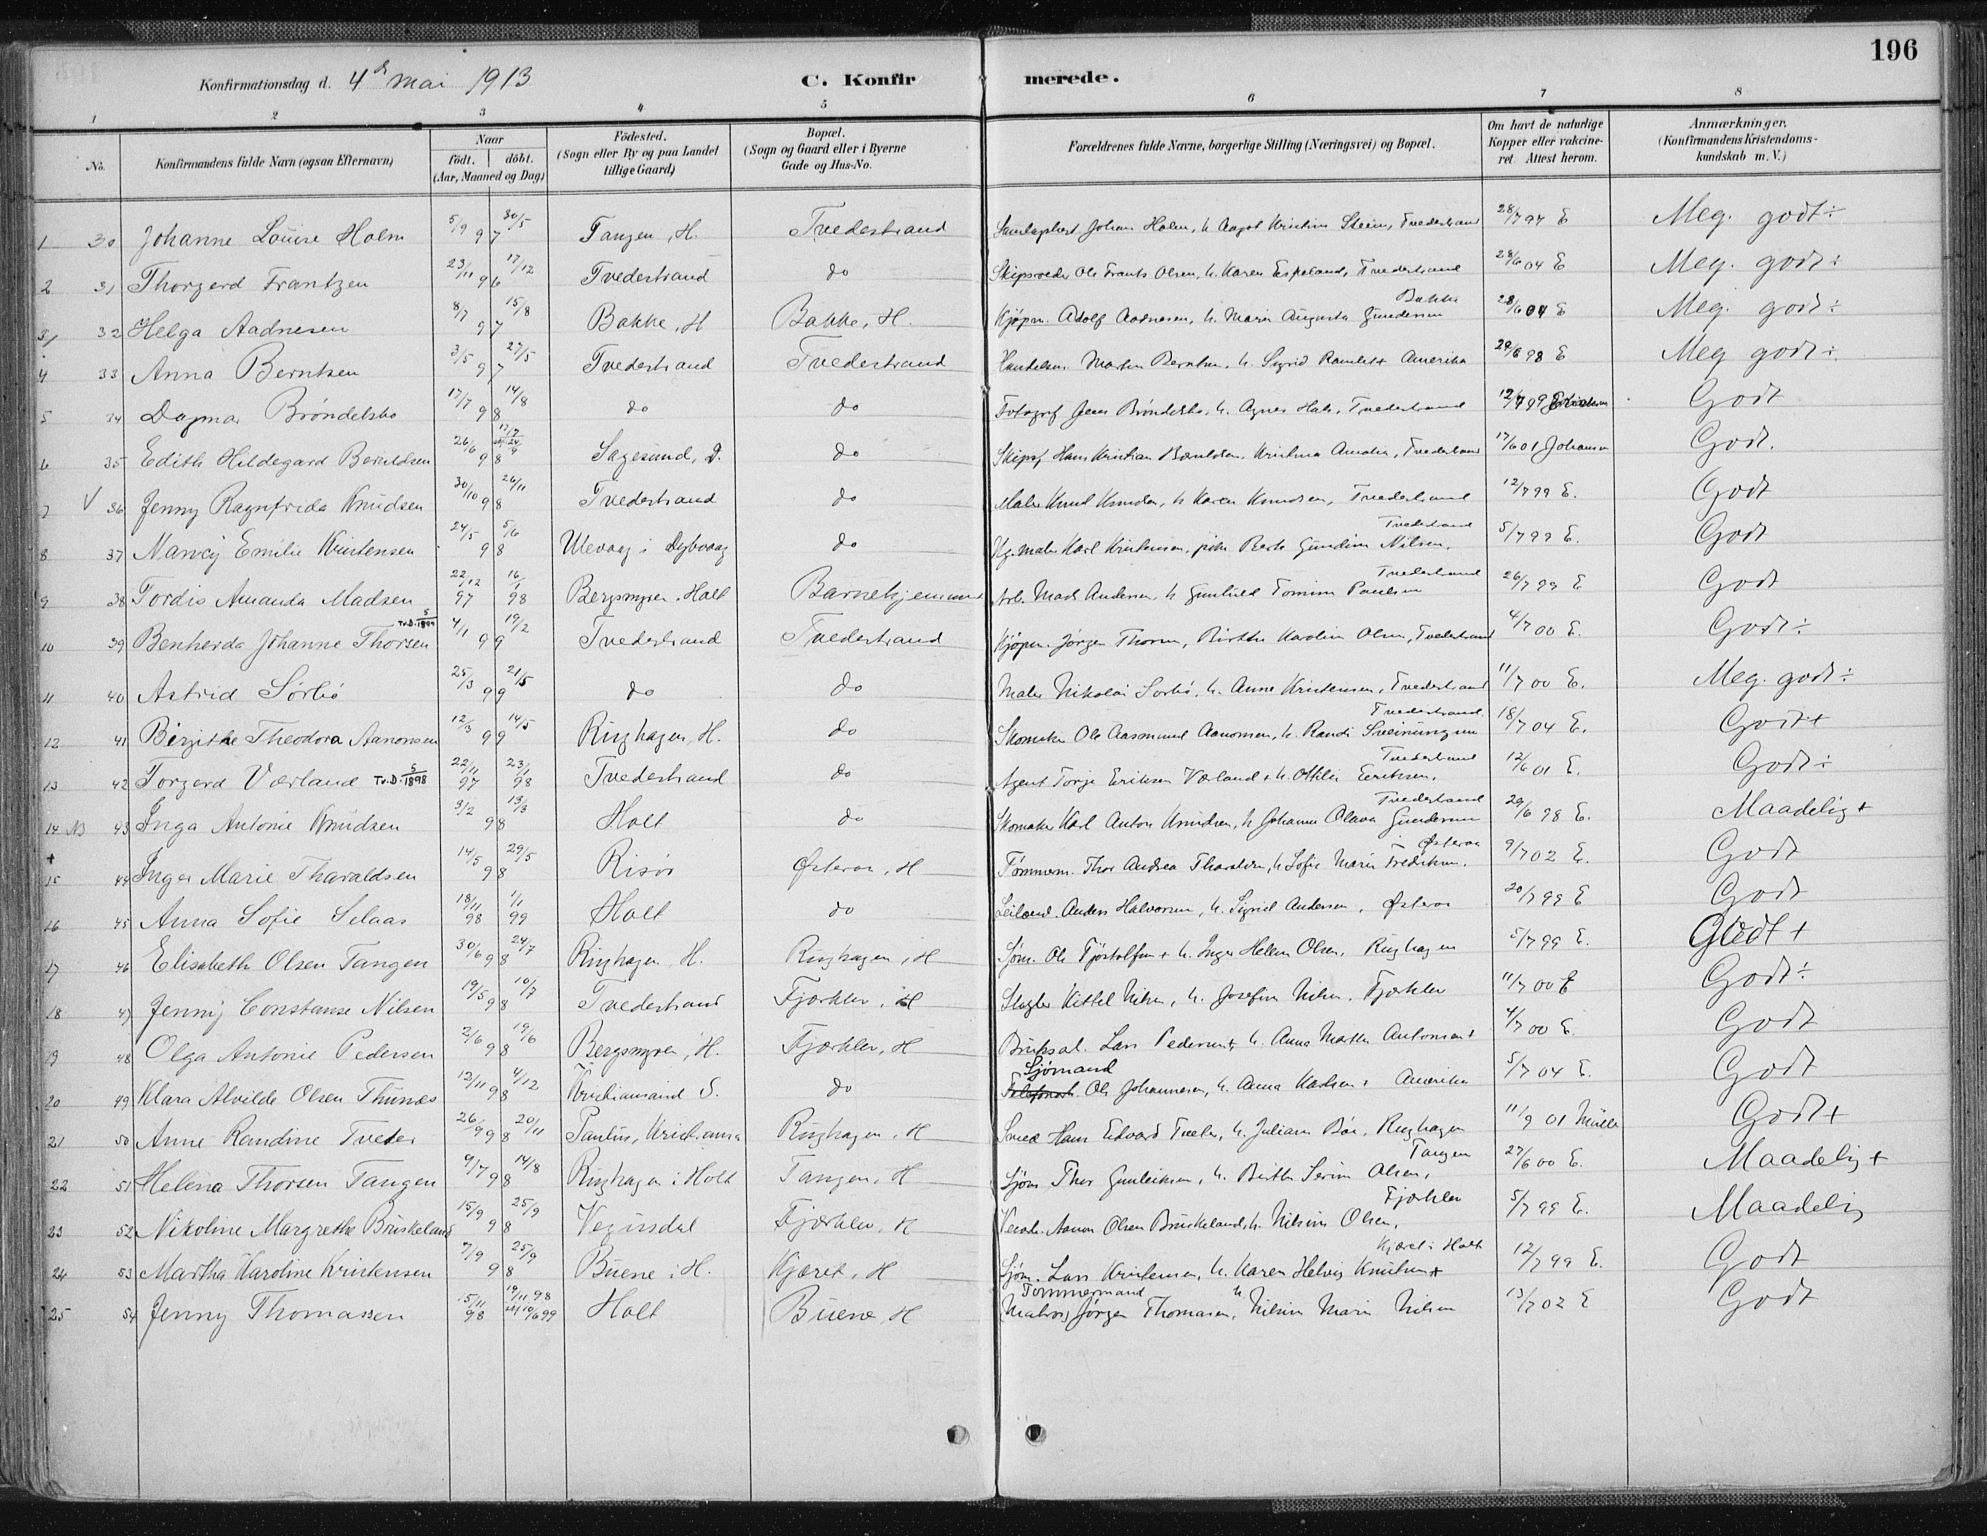 196
Konfirmationsdag d. 4de mai 1913 C. Konfir merede.
1 2 3 4 5 6 7 8
No. Konfirmandens fulde Navn (ogsaa Efternavn) Naar födt. döbt. (Aar, Maaned og Dag) Födested. (Sogn eller By og paa Landet tillige Gaard) Bopæl. (Sogn og Gaard eller i Byerne Gade og Hus-No. Forældrenes fulde Navne, borgerlige Stilling (Næringsvei) og Bopæl. Om havt de naturlige Kopper eller vakcineret. Attest herom. Anmærkninger. (Konfirmandens Kristendomskundskab m. V.)
1 30 Johanne Louise Holm 5/9 30/5 97 Tangen, H. Tvedestrand Johan Holm, h. Aagot Kristine Tvedestrand 28/7 97 E Meg. godt ÷
2 31 Thorgerd Frantzen 23/11 17/12 96 Tvedestrand do Skipsreder Ole Frants Olsen, h. Karen Espeland, Tvedestrand 28/6 04 E Meg. godt ÷
3 32 Helga Aadnesen 8/7 15/8 97 Bakke, H Bakke, H. Kjøpm. Adolf Aadnesen, h. Maria Augusta Gundersen Bakke 28/6 04 E Meg. godt ÷
4 33 Anna Berntsen 3/5 27/5 97 Tvedestrand Tvedestrand Martin Berntsen, h. Sigrid Amerika 29/6 98 E Meg godt ÷
5 34 Dagmar Bröndelsbo 17/7 14/8 98 do do Fotograf Jens Bröndelsbo, h. Agnes Tvedestrand 12/7 99 Godt
6 35 Edith Hildegard Berntdsen 26/6 17/7 98 Sagesund, D. do Skipsf. Hans Kristian Kristina Amalia, Tvedestrand 17/6 01 Johansen Godt.
7 V 36 Jenny Ragnfrida Knudsen 30/10 26/11 98 Tvedestrand do Maler Knud Knudsen, h. Karen Knudsen, Tvedestrand 12/7 99 E. Godt
8 37 Nancy Emilie Kristensen 24/5 5/6 98 Ulevaag i Dybvaag do Ug. maler Karl Kristensen, pike Berte Gundine Nilsen, Tvedestrand 5/7 99 E. Godt
9 38 Tordis Amanda Madsen 22/12 97 16/1 98 Bergsmyren, Holt Barnehjemmet Arb. Mads Andersen, h. Gunhild Tomine Paulsen Tvedestrand 26/7 99 E Godt
10 39 Benherda Johanne Thorsen Tv.D. 5/1899 4/1 19/2 99 Tvedestrand Tvedestrand Kjøpm. Jørgen Thorsen, Birthe Karoline Olsen, Tvedestrand 4/7 00 E. Godt ÷
11 40 Astrid Sörbö 25/3 21/5 99 do do Maler Nikolai Sorbö, h. Anne Kristensen, Tvedestrand 11/7 00 E. Meg. godt ÷
12 41 Birgitte Theodora Aanonsen 12/3 14/5 99 Ringhagen, H. do Skomaker Ole Aasmund Aanonsen, h. Randi Sveinungsen Tvedestrand 18/7 04 E. Godt +
13 42 Torgerd Værland Tv.D. 5/1898 22/11 97 23/1 98 Tvedestrand do Agent Torje Eriksen Værland & h. Otthilie Eriksen. Tvedestrand 12/6 01 E. Godt ÷
14 NB 43 Inga Antonie Knudsen 3/2 13/3 98 Holt do Skomaker Karl Anton Knudsen, h. Johanne Olava Gundersen Tvedestrand 29/6 98 E. Maadelig +
15 + 44 Inger Marie Tharaldsen 14/5 29/5 98 Risör Østeraa, H Tømmerm. Thor Andreas Tharaldsen, h. Sofie Marie Fredriksen. Østeraa 9/7 02 E. Godt
16 45 Anna Sofie Selaas 18/11 98 1/1 99 Holt do Leilænd. Anders Halvorsen, h. Sigrid Andersen, Østeraa 20/7 99 E Godt
17 46 Elisabeth Olsen Tangen 30/6 24/7 98 Ringhagen, H. Ringhagen, H Sjøm. Ole + h. Inger Helene Olsen, Ringhagen 5/7 99 E. Godt +
18 47 Jenny Constanse Nilsen 19/5 10/7 98 Tvedestrand Fjærkleiv, H Kittel Nilsen, h. Josefine Nilsen. Fjærkleiv 11/7 00 E Godt ÷
19 48 Olga Antonie Pedersen 2/6 19/6 98 Bergsmyren, H. Fjærkleiv, H Lars Pedersen + h. Anna Marthe Antonsen + 4/7 00 E. Godt
20 49 Klara Alvilde Olsen Thunæs 12/11 4/12 98 Kristiansand S. do Sjømand Ole Johannesen, h. Anna Karlsen + Amerika 5/7 04 E. Godt
21 50 Anne Randine Tveder 26/9 20/11 98 Paulus, Kristiania Ringhagen, H Smed Hans Edvard Tveder, h. Juliane Bøe, Ringhagen 11/9 01 Müller Godt +
22 51 Helena Thorsen Tangen 9/7 14/8 98 Ringhagen i Holt Tangen, H Sjøm Thor Gunleiksen, h. Birthe Serine Olsen, Tangen 27/6 00 E. Maadelig +
23 52 Nikoline Margrethe Bruskeland 15/9 25/9 98 Vegusdal Fjærkleiv, H Aanon Olsen Bruskeland, h. Nilsine Olsen, Fjærkleiv 5/7 99 E. Maadelig
24 53 Martha Karoline Kristensen 7/9 25/9 98 Buene i H. Kjæret, H Sjøm. Lars Kristensen, h. Karen Helvig Knutsen + Kjæret i Holt 12/7 99 E. Godt
25 54 Jenny Thomassen 15/11 98 19/11 98 19/6 99 Holt Buene, H Tømmermand (Matros) Jørgen Thomassen, h. Nilsine Marie Nilsen 13/7 02 E Godt